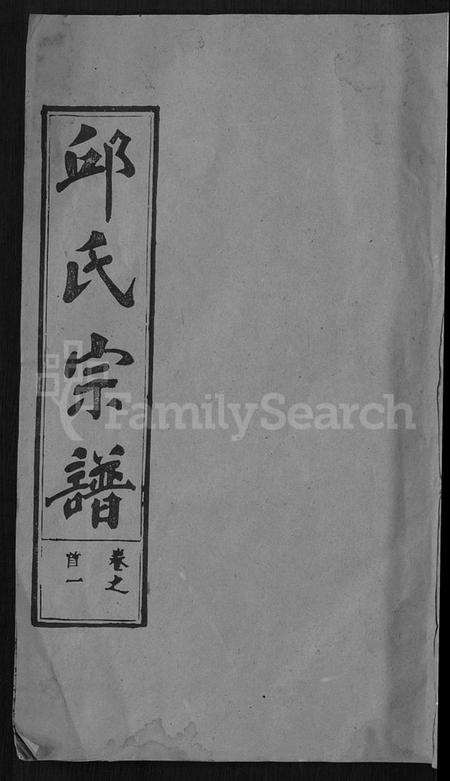 邱氏宗譜
卷之
首一
FamilySearch